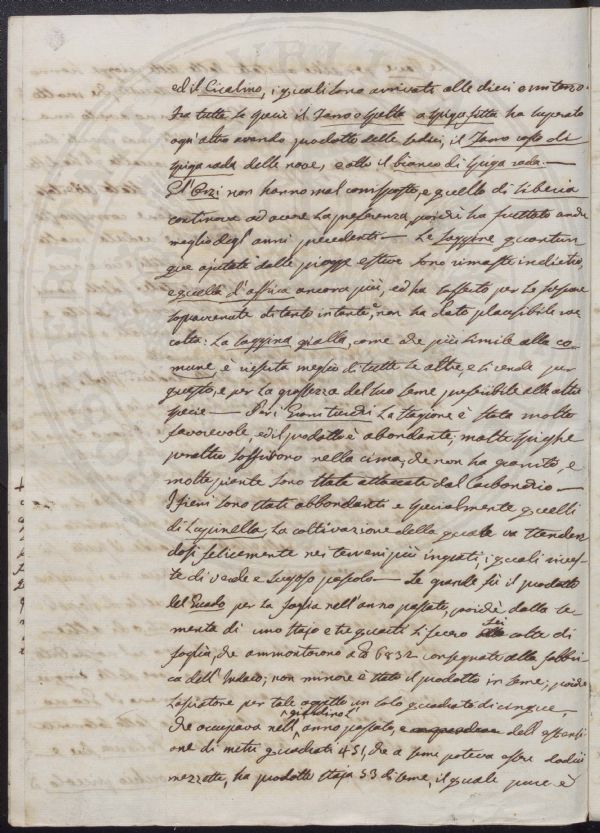 ed il Cicalino, i quali sono arrivati alle dieci e un terzo.
Fra tutte le specie il Farro o Spelta a spiga fitta ha superato
ogn'altro avendo prodotto delle sedici, il Farro rosso di
spiga rada delle nove, e otto il bianco di spiga rada. —
Gl'Orzi non hanno mal corrisposto, e quello di Siberia
continova ad avere la preferenza, poichè ha fruttato anche
meglio degl'anni precedenti — Le Saggine quantun
que ajutate dalle piogge estive sono rimaste indietro,
e quella d'Affrica ancora più, ed ha sofferto per le
sopravvenute di tanto in tanto, non ha dato plausibile rac
colta: La Saggina gialla, come che più simile alla co
mune, è riescita meglio di tutte le altre, e si rende per
questo, e per la grossezza del suo seme preferibile alle altre
specie — Per i Grani Turchi la stagione è stata molto
favorevole, ed il prodotto è abondante; molte spighe
peraltro soffrirono nella cima, che non ha granito, e
molte piante sono state attaccate dal Carbonchio —
I fieni sono stati abbondanti e specialmente quelli
di Lupinella, la coltivazione della quale va stenden
dosi felicemente nei terreni più ingrati, i quali rives-
te di verde e sugoso pascolo — Le grande fù il prodotto
del Guado per la foglia nell'anno passato, poichè dalla se
menta di uno stajo e tre quarti si fecero sei colte di
foglia, che ammontorono a lb 6832 consegnate alla fabbri
ca dell'Indaco; non minore è stato il prodotto in seme; poichè
lasciatone per tale oggetto un solo quadrato di cinque,
che occupava nell' giardino l'anno passato, e dell'estensi
one di metri quadrati 451, che a semi poteva essere dodici
mezzette, ha prodotto staja 53 di seme, il quale pure è